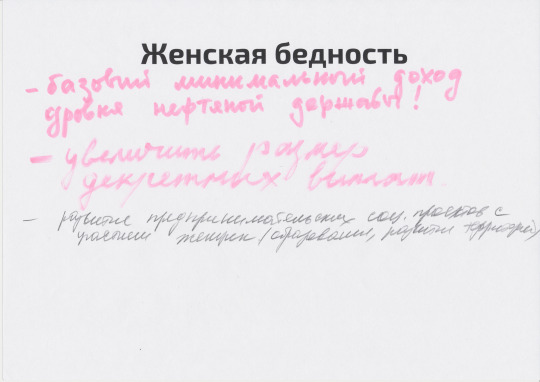 Женская бедность
- базовый минимальный доход
уровня нефтяной державы!
- увеличить размер
декретных выплат.
- развитие предпринимательских соц. проектов с
участием женщин (образование, развитие территорий)